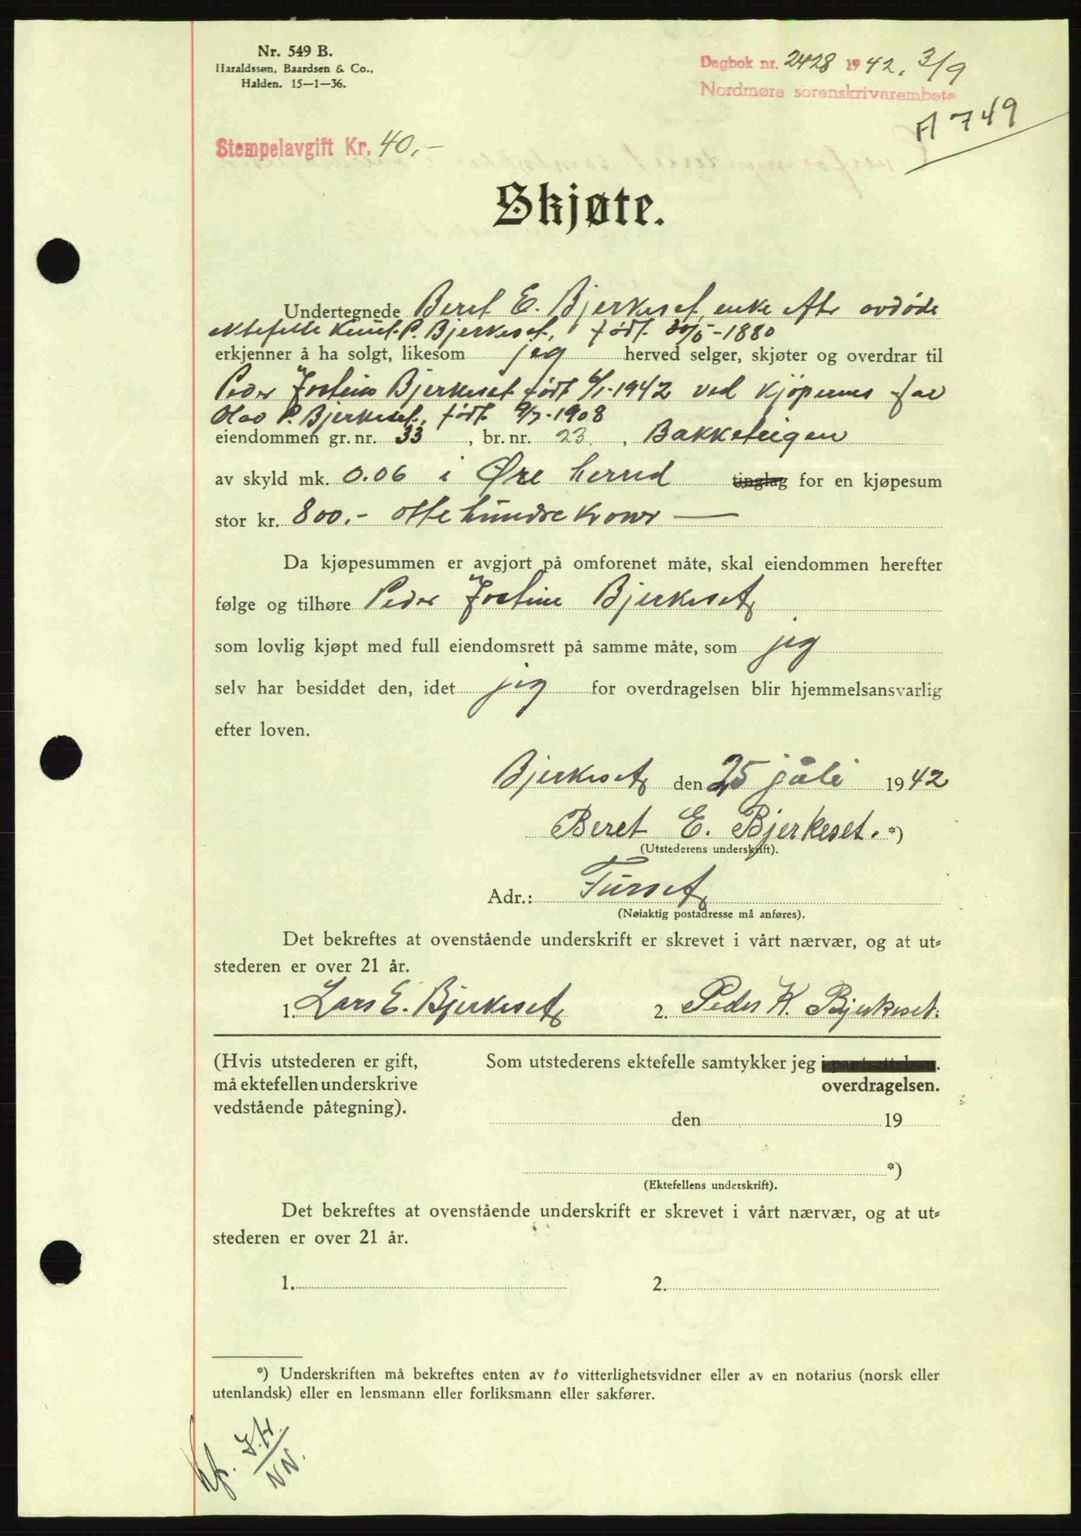 Nr. 549 B.
Haraldssøn, Baardsen & Co.,
Halden. 15—1—36.
Dagbok nr. 2428 1942. 3/9
Nordmøre sorenskriverembete
A 749
Stempelavgift Kr. 40,-
Skjøte.
Undertegnede Beret E. Bjerkeset, enke etr avdøde
ektefelle Knut P. Bjerkeset, født /5-1880
erkjenner å ha solgt, likesom jeg herved selger, skjøter og overdrar til
Peder Jostein Bjerkeset født 6/1-1942 ved kjøperens far
Olav P. Bjerkeset, født 9/7-1908
eiendommen gr. nr. 33, br. nr. 23, Bakketeigen
av skyld mk. 0.06 i Øre herred tinglag for en kjøpesum
stor kr. 800.- otte hundre kroner —
Da kjøpesummen er avgjort på omforenet måte, skal eiendommen herefter
følge og tilhøre Peder Jostein Bjerkeset
som lovlig kjøpt med full eiendomsrett på samme måte, som jeg
selv har besiddet den, idet jeg for overdragelsen blir hjemmelsansvarlig
efter loven.
Bjerkeset den 25 juli 1942
Beret E. Bjerkeset. *)
(Utstederens underskrift).
Adr.: Furset
(Nøiaktig postadresse må anføres).
Det bekreftes at ovenstående underskrift er skrevet i vårt nærvær, og at ut-
stederen er over 21 år.
1. Lars E. Bjerkeset 2. Peder K. Bjerkeset.
(Hvis utstederen er gift, Som utstederens ektefelle samtykker jeg i pantsettelsen.
må ektefellen underskrive overdragelsen.
vedstående påtegning).
den 19
*)
(Ektefellens underskrift).
Det bekreftes at ovenstående underskrift er skrevet i vårt nærvær, og at ut-
stederen er over 21 år.
1. 2.
*) Underskriften må bekreftes enten av to vitterlighetsvidner eller av en notarius (norsk eller
utenlandsk) eller en lensmann eller forliksmann eller sakfører.
NN.